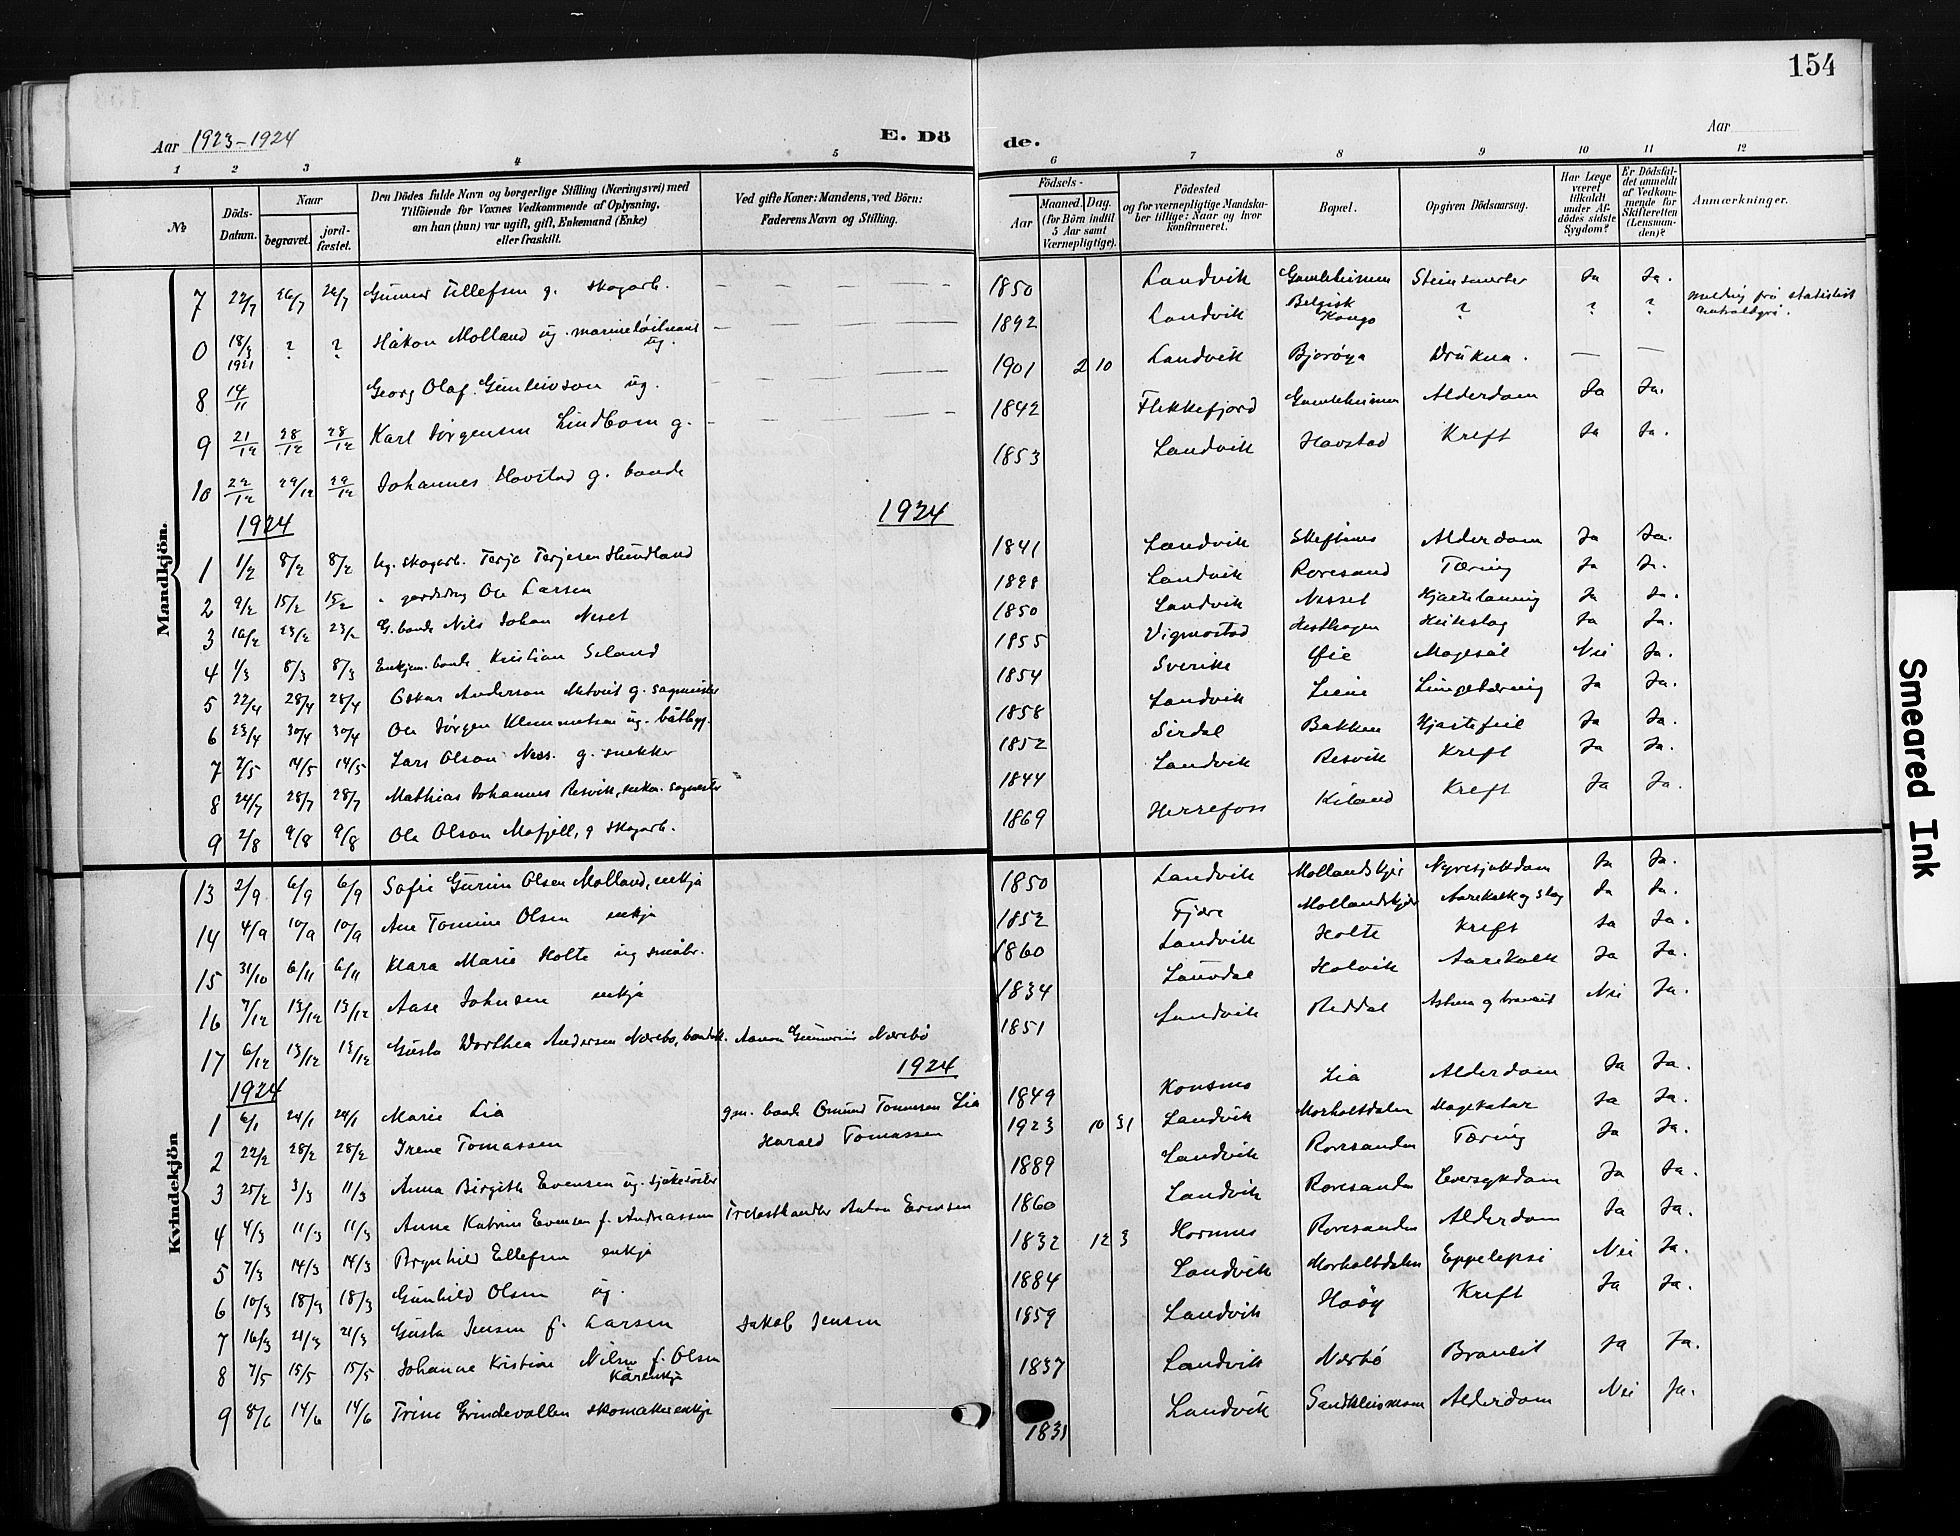 154
Aar 1923-1924
E. Dö
de.
Aar
1 2 3 4 5 6 7 8 9 10 11 12
№
Döds-Datum.
Naar
begravet.
jord-fæstet.
Den Dödes fulde Navn og borgerlige Stilling (Næringsvei) med
Tilföiende for Voxnes Vedkommende af Oplysning,
om han (hun) var ugift, gift, Enkemand (Enke)
eller fraskilt.
Ved gifte Koner: Mandens, ved Börn:
Faderens Navn og Stilling.
Födsels-
Aar
Maaned. Dag.
(for Börn indtil
5 Aar samt
Værnepligtige).
Födested
og for værnepligtige Mandska-
ber tillige: Naar og hvor
konfirmeret.
Bopæl.
Opgiven Dödsaarsag.
Har Læge
været
tilkaldt
under Af-
dödes sidste
Sygdom?
Er Dödsfal-
det anmeldt
af Vedkom-
mende for
Skifteretten
(Lensman-
den)?
Anmærkninger.
Mandkjön.
7 22/7 26/7 26/7 Gunner Tellefsen g. skogarb. 1850 Landvik Stein Ja Ja.
0 18/3 1921 ? ? Håkon Molland ug. 1892 Landvik Belgisk Kongo ? ? ? melding frå
8 14/11 Georg Olaf ug. 1901 2 10 Landvik Bjorøya Drukna. — —
9 21/12 28/12 28/12 Karl Jørgensen Lindbom g. 1842 Flekkefjord Alderdom Ja Ja.
10 22/12 29/12 29/12 Johannes Hovstad g. bonde 1853 Landvik Hovstad Kreft Ja Ja.
1924 1924
1 1/2 8/2 8/2 ug. skogarb. Terje Terjesen Hundland 1841 Landvik Alderdom Ja Ja.
2 9/2 15/2 15/2 Ole Larsen Landvik Roresand Tæring Ja Ja.
3 16/2 23/2 23/2 G. bonde Nils Johan Neset 1850 Landvik Nesset Ja Ja.
4 1/3 8/3 8/3 Enkjem. bonde Kristian Seland 1855 Vigmostad Hesthagen Ja Ja.
5 22/4 28/4 28/4 Oskar Anderson g. sagmester 1854 Sverike Øie Magesål Nei Ja.
6 23/4 30/4 30/4 Ole Jørgen Klemmetsen ug. båtbygg. 1858 Landvik Ja Ja.
7 7/5 14/5 14/5 Lars Olson Nes. g. snekker 1852 Sirdal Bakken Hjartefeil Ja Ja.
8 24/7 28/7 28/7 Mathias Johannes Resvik, sagmester 1844 Landvik Resvik Kreft Ja Ja.
9 2/8 9/8 9/8 Ole Olson Mofjell, g skogarb. 1869 Herrefoss Kiland Kreft Ja Ja.
Kvindekjön
13 2/9 6/9 6/9 Sofie Gurine Olsen Molland, enkja 1850 Landvik Mollandskjer Nyresjukdom Ja Ja.
14 4/9 10/9 10/9 Ane Tomine Olsen enkja 1852 Fjære Mollandskjer Aarekalk og slag Ja Ja.
15 31/10 6/11 6/11 Klara Marie Holte ug småbr. 1860 Landvik Holte Kreft Ja Ja.
16 7/12 13/12 13/12 Aase Johnsen enkja 1834 Lauvdal Holvik Aarekalk Ja Ja.
17 6/12 13/12 13/12 Gusta Dorthea Andersen Nærebø, Aanon Gunnerius Nærebø 1851 Landvik Reddal Astma og Nei Ja.
1924 1924
1 6/1 24/1 24/1 Marie Lia gm. bonde Omund Tomessen Lia 1849 Konsmo Lia Alderdom Ja Ja.
2 22/2 28/2 28/2 Irene Tomassen Harald Tomassen 1923 10 31 Landvik Morholtdalen Magekatar Ja Ja.
3 25/2 3/3 11/3 Anna Birgith Evensen ug. sjukesøster 1889 Landvik Roresanden Tæring Ja Ja.
4 4/3 11/3 11/3 Anne Katrine Evensen f. Andreassen Trelasthandler Anton Evensen 1860 Landvik Roresanden Leversykdom Ja Ja.
5 7/3 14/3 14/3 Brynhild Ellefsen enkja 1832 12 3 Hornnes Roresanden Alderdom Ja Ja.
6 10/3 18/3 18/3 Gunhild Olsen ug. 1884 Landvik Morholtdalen Eppelepsi Nei Ja.
7 16/3 21/3 21/3 Gusta Jensen f. Larsen Jakob Jensen 1859 Landvik Haøy Kreft Ja Ja.
8 7/5 15/5 15/5 Johanne Kristine Nilsen f. Olsen Kårenkje 1837 Landvik Nærbø Ja Ja.
9 8/6 14/6 14/6 Trine Grindevollen skomakerenkje 1831 Landvik Alderdom Nei Ja.
Smeared Ink